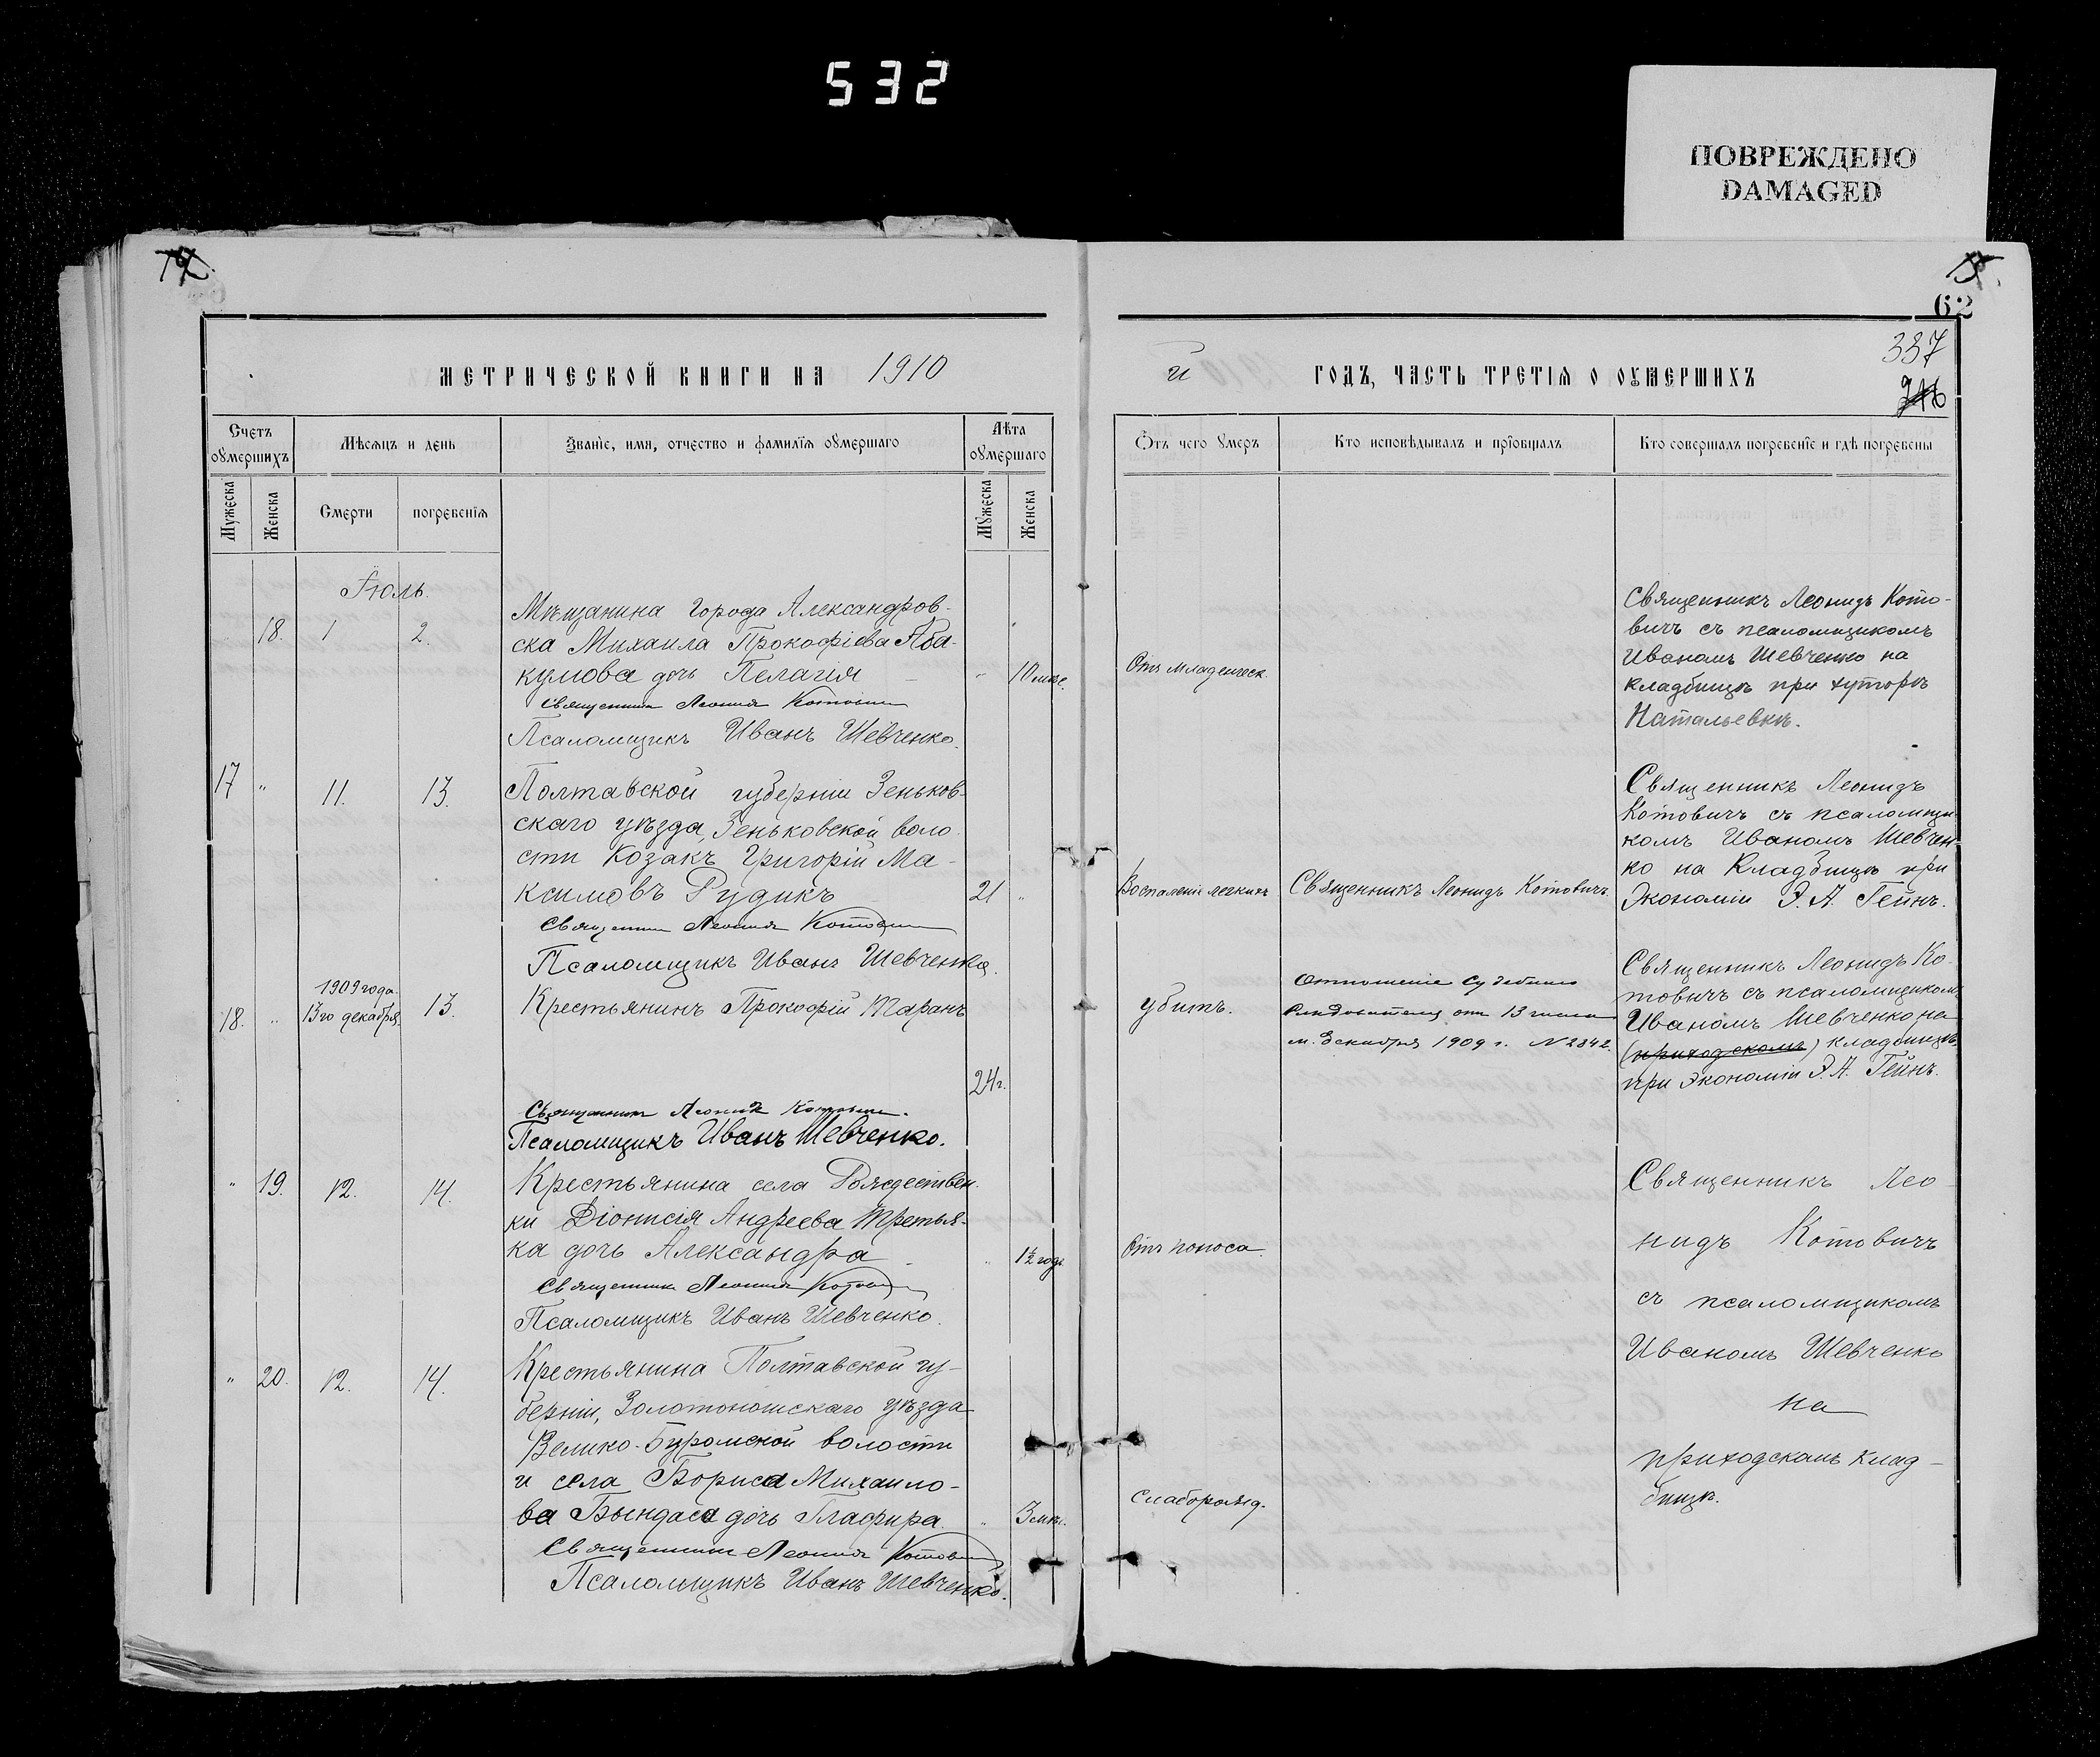 532
ПОВРЕЖДЕНО
DAMAGED
62
337
МЕТРИЧЕСКОЙ КНИГИ НА 1910
й ГОДЪ, ЧАСТЬ ТРЕТІЯ О ОУМЕРШИХЪ
Счетъ оумершихъ
Мѣсяцъ и день
Званіе, имя, отчество и фамилія оумершаго
Лѣта оумершаго
Отъ чего оумеръ
Кто исповѣдывалъ и пріобщалъ
Кто совершалъ погребеніе и гдѣ погребены
Мужеска
Женска
Смерти
погребенія
Мужеска
Женска
Іюль.
18. 1 2.
Мѣщанина города Александров-
ска Михаила Прокофіева Аба-
кумова дочь Пелагія
" 10 мѣс.
Священник Леонид Котович
Псаломщикъ Иванъ Шевченко.
Отъ младенческ.
Священникъ Леонидъ Кото-
вичъ съ псаломщикомъ
Иваномъ Шевченко на
кладбищѣ при хуторѣ
Натальевкѣ.
17 " 11. 13.
Полтавской губерніи Зеньков-
скаго уѣзда, Зеньковской воло
сти Козакъ Григорій Ма-
ксимовъ Рудикъ
21 "
Священник Леонид Котович
Псаломщикъ Иванъ Шевченко.
Воспаленіе легкихъ
Священникъ Леонидъ Котовичъ.
Священникъ Леонидъ
Котовичъ съ псаломщи-
комъ Иваномъ Шевчен-
ко на Кладбищѣ при
Экономіи Э. А. Гейнъ.
18. " 1909 года.
13го декабря 13.
Крестьянинъ Прокофій Таранъ
24 г.
Священник Леонид Котович.
Псаломщикъ Иванъ Шевченко.
убитъ.
Отношеніе Судебнаго
Слѣдователя отъ 13 числа
м. Декабря 1909 г. № 2842.
Священникъ Леонидъ Ко-
товичъ съ псаломщикомъ
Иваномъ Шевченко на
(приходскомъ) кладбищѣ
при Экономіи Э. А. Гейнъ.
" 19. 12. 14.
Крестьянина села Рождествен-
ки Діонисія Андреева Третья-
ка дочь Александра
" 1½ года
Священник Леонид Котович
Псаломщикъ Иванъ Шевченко.
Отъ поноса.
Священникъ Лео-
нидъ Котовичъ
съ псаломщикомъ
Иваномъ Шевченко
на
приходскомъ клад-
бищѣ.
" 20. 12. 14.
Крестьянина Полтавской гу-
берніи, Золотоношскаго уѣзда
Велико-Буромской волости
и села Бориса Михаило-
ва Бындаса дочь Глафира.
" 3 мѣс.
Священник Леонид Котович
Псаломщикъ Иванъ Шевченко.
Слаборожд.